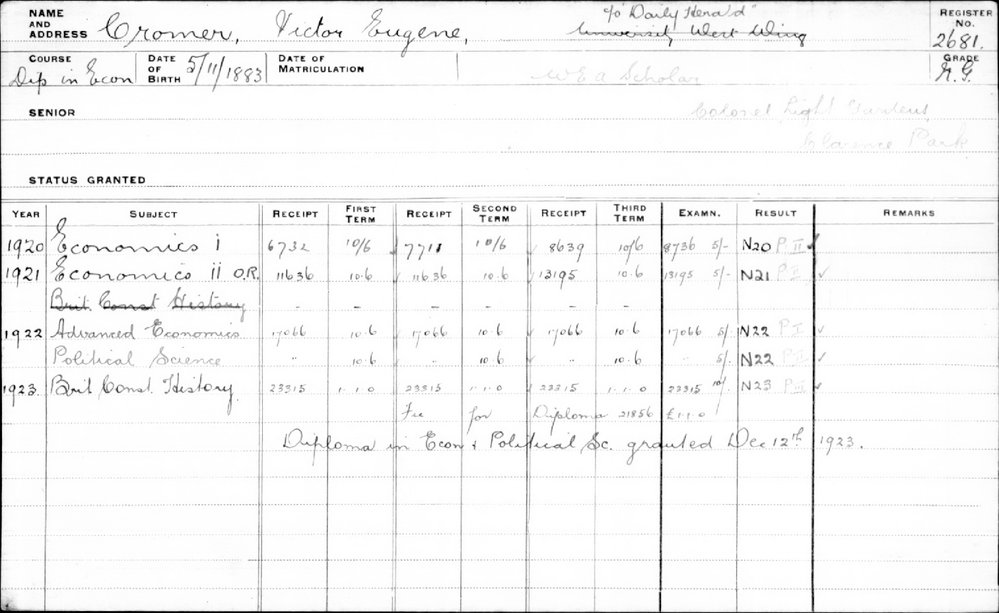 NAME AND ADDRESS Cromer, Victor Eugene, c/o "Daily Herald" University West Wing REGISTER NO. 2681.
COURSE Dip in Econ DATE OF BIRTH 5/11/1883 DATE OF MATRICULATION W E A Scholar GRADE N.G.
SENIOR Colonel Light Gardens,
Clarence Park
STATUS GRANTED
YEAR SUBJECT RECEIPT FIRST TERM RECEIPT SECOND TERM RECEIPT THIRD TERM EXAMN. RESULT REMARKS
1920 Economics i 6732 10/6 7711 10/6 8639 10/6 8736 5/- N20 P. II ✓
1921 Economics ii O.R. 11636 10.6 11636 10.6 13195 10.6 13195 5/- N21 ✓
Brit Const History - - - - - -
1922 Advanced Economics 17066 10.6 17066 10.6 17066 10.6 17066 5/- N22 ✓
Political Science " 10.6 " 10.6 " 10.6 " 5/- N22 ✓
1923 Brit Const. History 23315 1.1.0 23315 1.1.0 23315 1.1.0 23315 10/- N23 ✓
Fee for Diploma 21856 £1.1.0
Diploma in Econ & Political Sc. granted Dec 12th 1923.